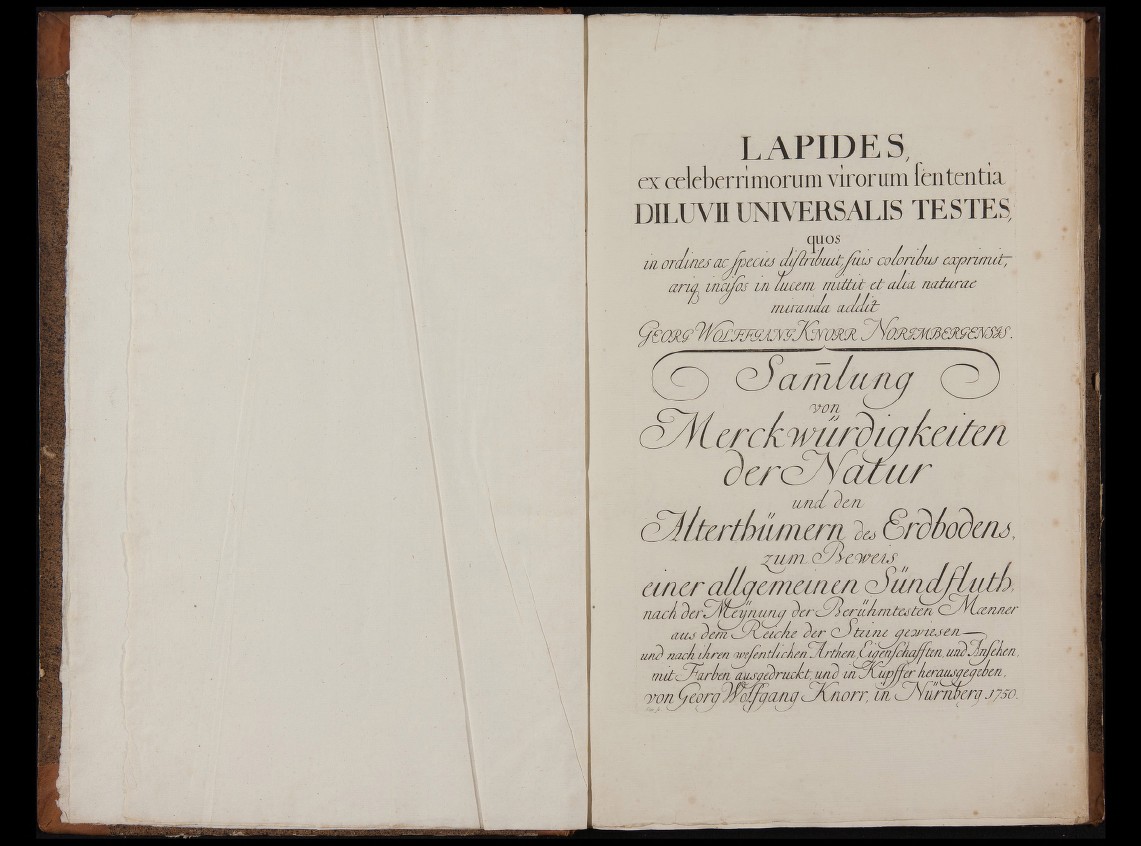 LAPIDES,
ex celeberrimorum virorum ſententia
DILUVII UNIVERSALIS TESTES,
quos
in ordines ac ſpecies diſtribuit, ſuis coloribus exprimit,
æriq. inciſos in lucem mittit et alia naturae
miranda addit
GEORG WOLFFGANG KNORR NORIMBERGENSIS.
Sam̄lung
von
Merckwürdigkeiten
der Natur
und den
Alterthümern des Erdbodens,
zum Beweis
einer allgemeinen Sündfluth,
nach der Meÿnung der Berühmtesten Mænner
aus dem Reiche der Steine gewiesen
und nach ihren weſentlichen Arthen, Eigenſchafften, und Anſehen,
mit Farben ausgedruckt, und in Kupffer herausgegeben,
von Georg Wolfgang Knorr, in Nürnberg 1750.